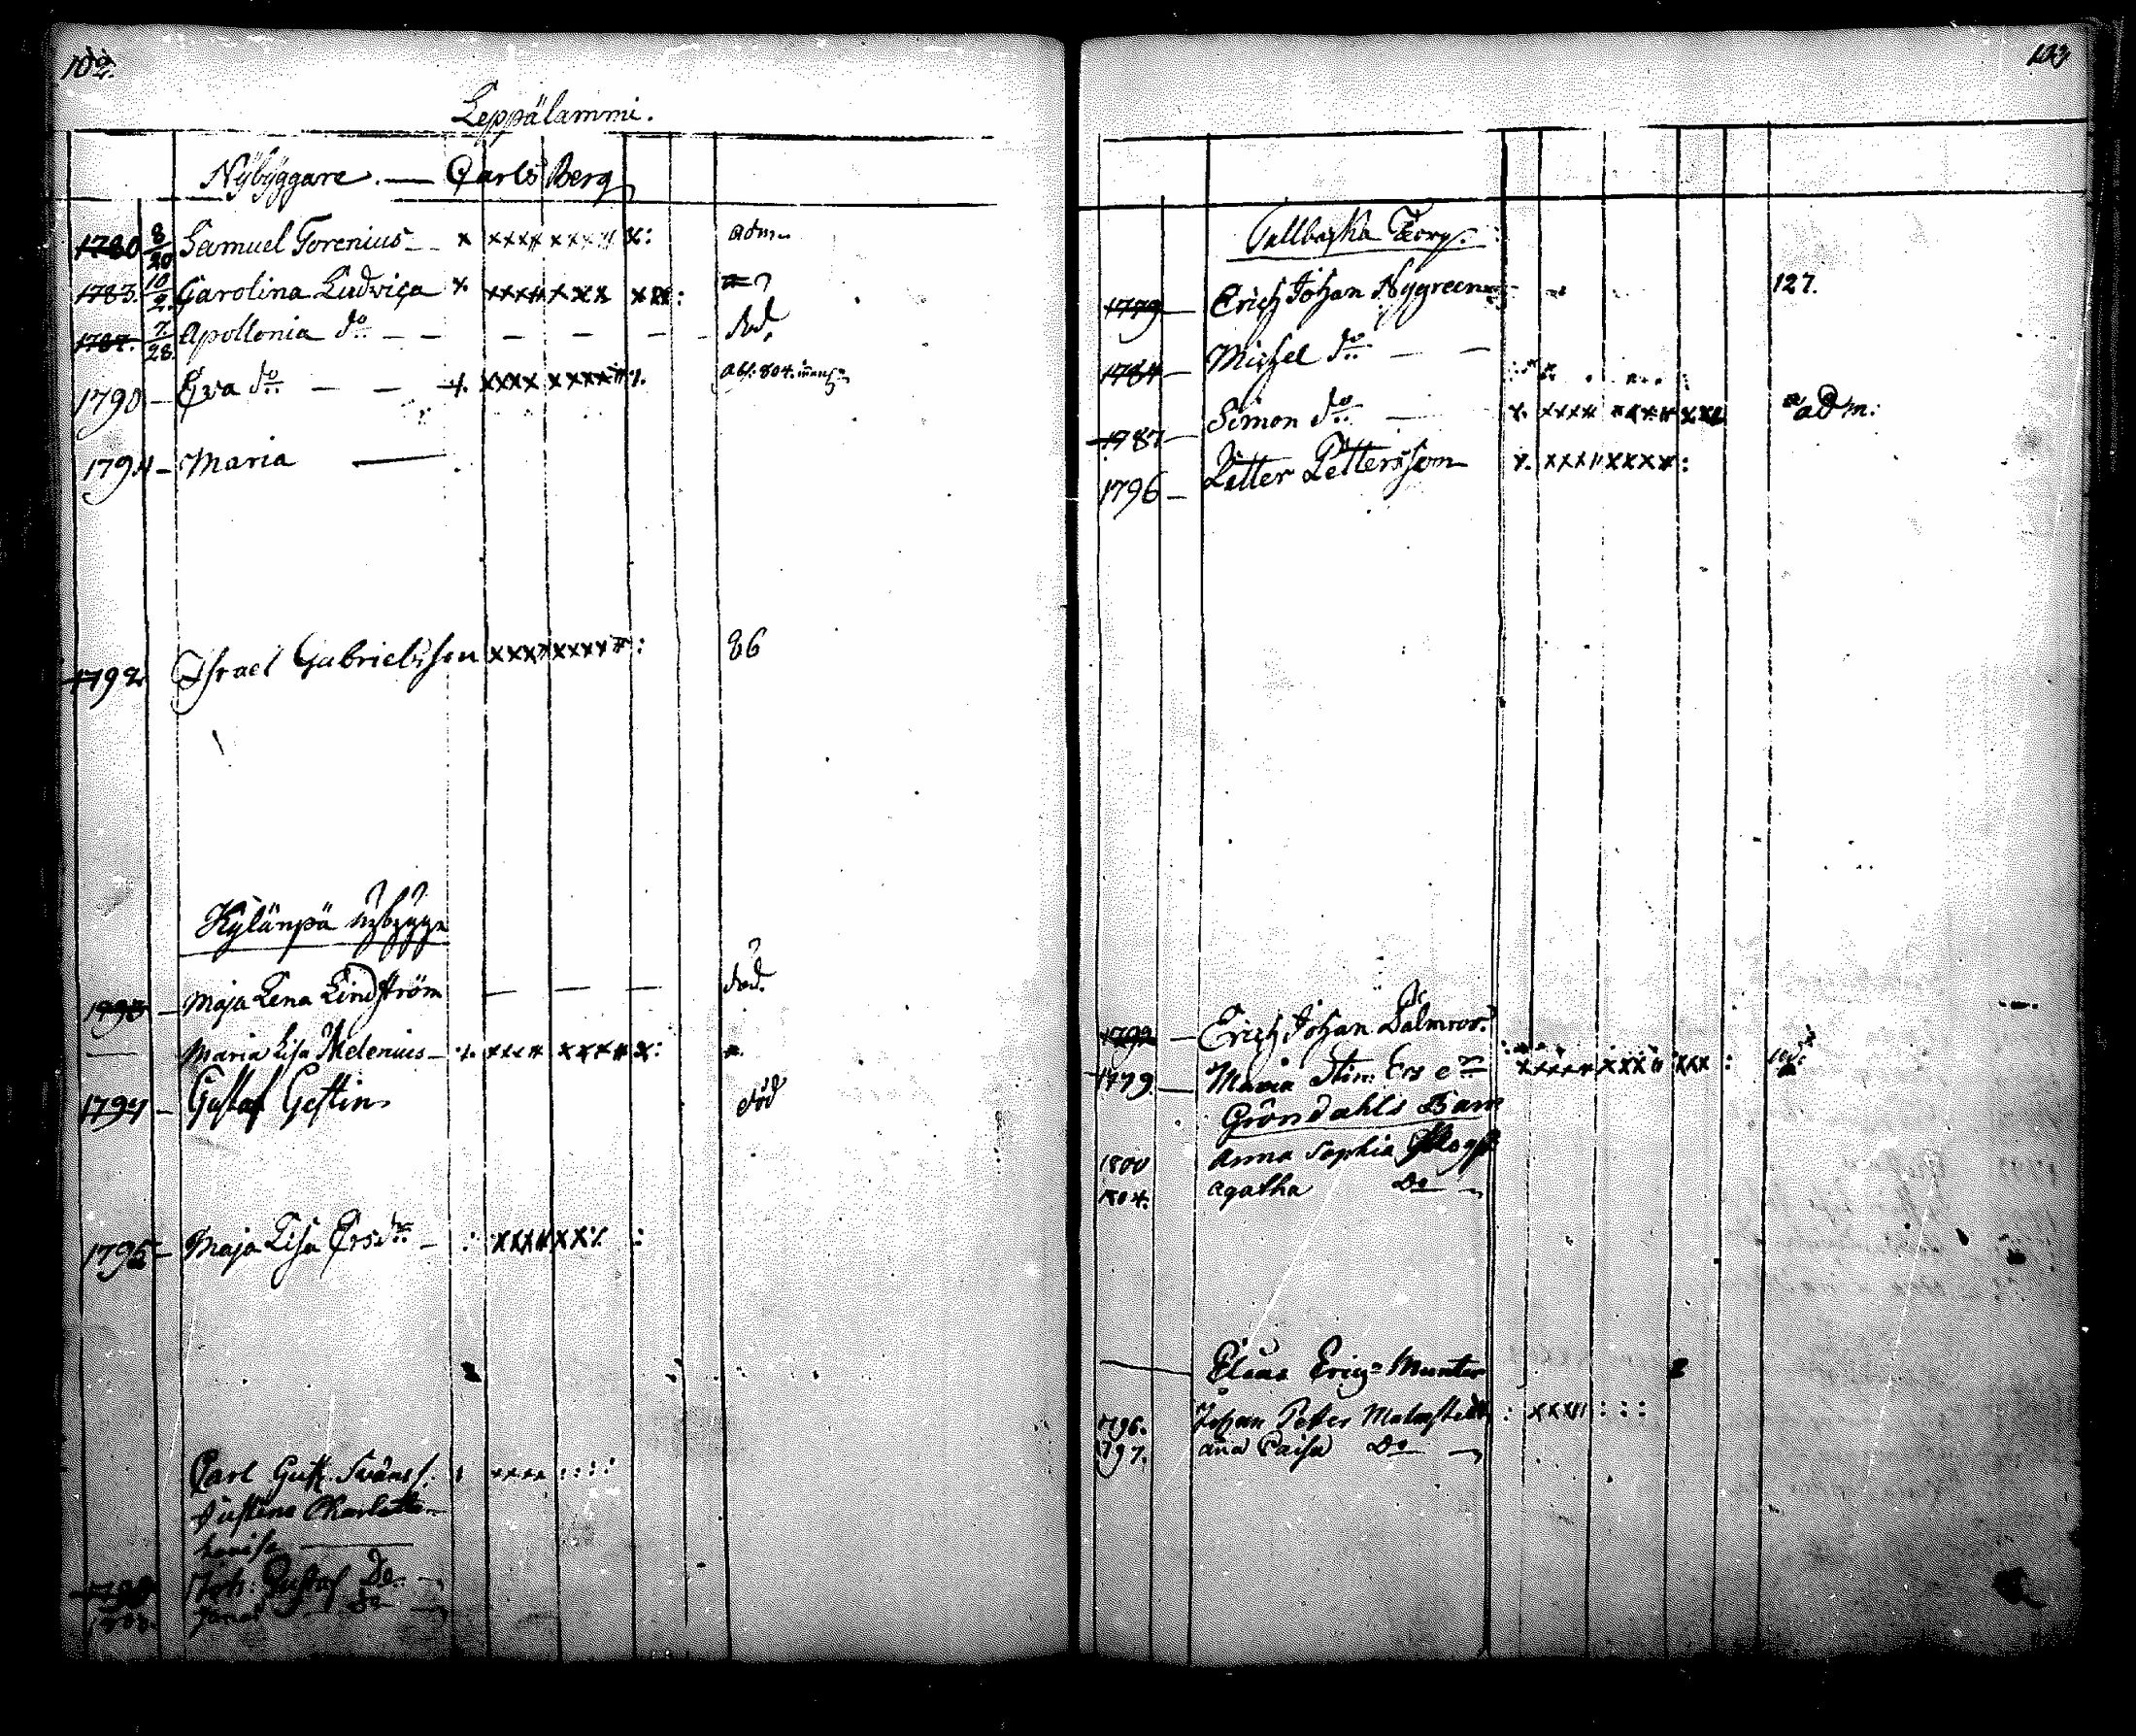 102.
Leppälammi.
Nybyggare. — Carls Berg
1780 8/20 Samuel Forenius — x xxxx xxxx x: adm.
1783. 10/2. Carolina Ludvica x xxxx xxx xx:
1787. 7/28. Apollonia do — — — — — död.
1790 — Eva do — — x. xxxx xxxxx x. 804.
1794 — Maria —
1792 Israel Gabrielsson xxxx xxxxx : 86
Kylänpä nybygge
1793 — Maja Lena Lindström — — — död.
— Maria Lisa Melenius — x. xxxx xxxx x:
1794 — Gustaf Gestin död
1795 — Maja Lisa Ersdr — : xxxx xxx :
Carl Gust. Svänss. : xxxx : : : :
Justina Charlotta
Lovisa —
Joh: Gustaf Do
Jonas — Do
123
Tallbacka Torp.
1779 — Erich Johan Nygreen 127.
1784 — Michel do — —
1787 — Simon do — x. xxxx xxxx xxx adm:
1796 — Petter Pettersson x. xxxx xxxx :
1792 — Erich Johan Palmroos
1779. — Maria Stin: Ers xxxxx xxxx xxx :
Gröndahls Barn
1800 Anna Sophia
1804. Agatha Do
— Claas Eric Munter
1796. Johan Petter Malmstedt : xxxx : : :
1797. Caisa Do